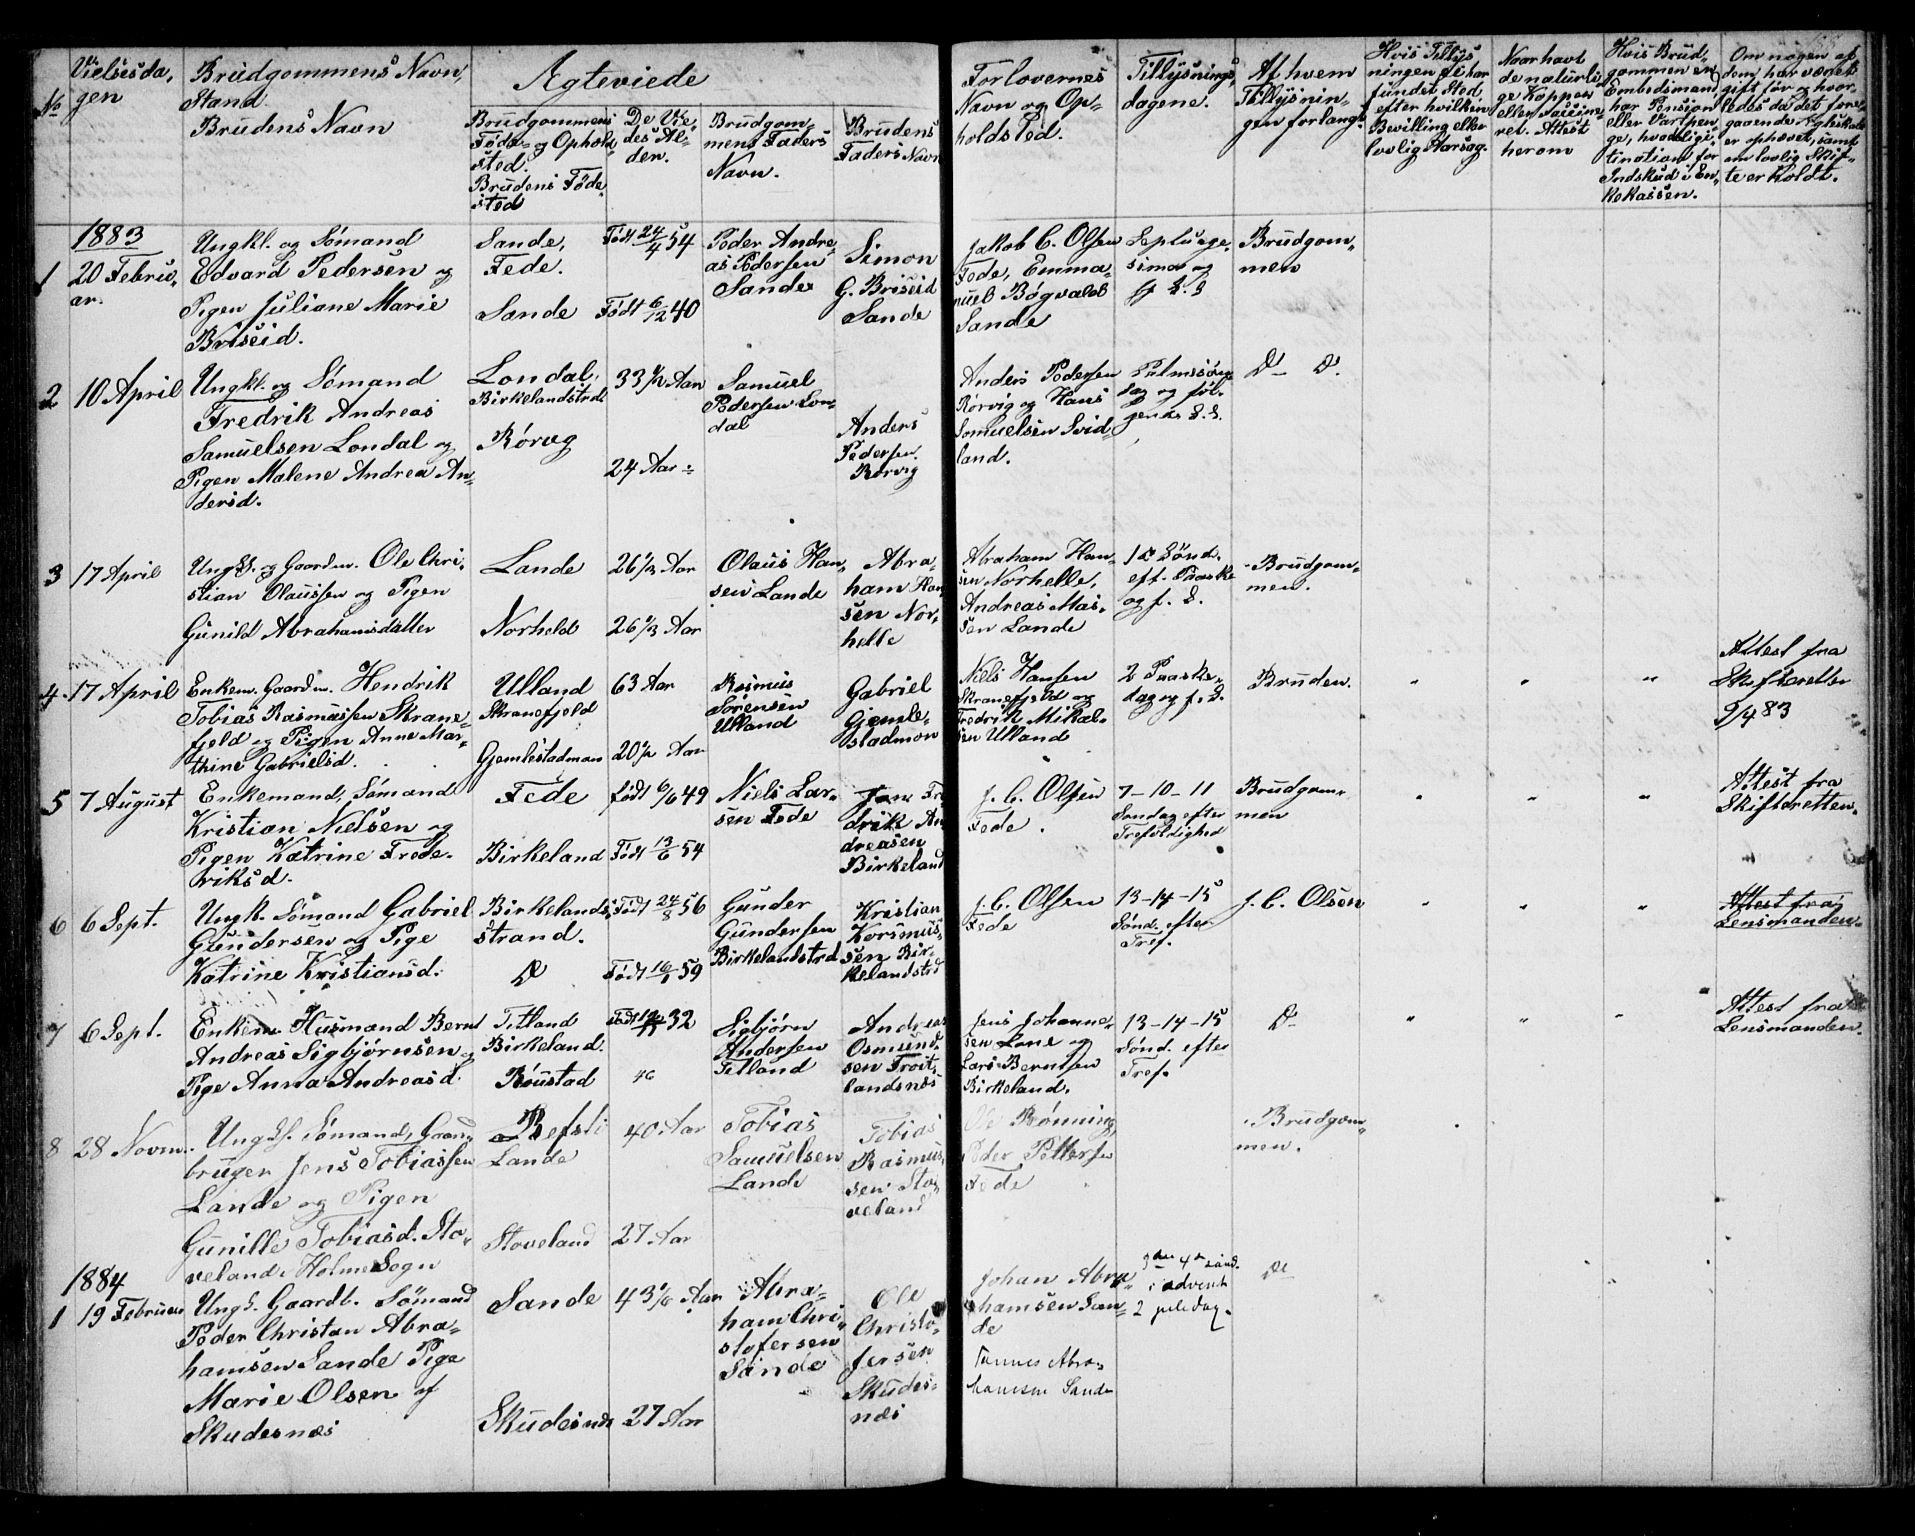 No
Vielsesda,
gen
Brudgommens Navn,
Stand.
Brudens Navn
Ægteviede
Brudgommens
Føde- og Ophold-
sted.
Brudens Føde-
sted
De Vie-
des Al-
der.
Brudgom-
mens Faders
Navn.
Brudens
Faders Navn
Forlovernes
Navn og Op-
holdsted.
Tillysnings,
dagene.
Af hvem
Tillysnin-
gen forlangt
Hvis Tillys
ningen ei har
fundet Sted
efter hvilken
Bevilling eller
lovlig Aarsag.
Naar havt
de naturli
ge Kopper
eller vaccine-
ret. Attest
herom
Hvis Brud-
gommen en
Embedsmand
har Pension
eller Vartpen
ge, hvad
for
Indskud i En-
kekassen.
Om nogen af
dem har været
gift før og hvor-
ledes da det fore-
gaaende Ægteskab
er ophævet, samt
om lovlig Skif-
te er holdt.
1883
1
20 Febru,
ar.
Ungkl. og Sømand
Edvard Pedersen og
Pigen Juliane Marie
Briseid.
Sande,
Fede.
Sande
Født 24/4 54
Født 6/12 40
Peder Andre-
as Pedersen
Sande
Simon
G. Briseid
Sande
Jakob C. Olsen
Fede, Emma-
nuel Bøgvald
Sande
Septuage-
sima og
f. S. S
Brudgom-
men
2
10 April
Ungkl. og Sømand
Fredrik Andreas
Samuelsen Londal og
Pigen Malene Andrea An-
dersd.
Londal,
Birkelandstrd
Rørvg
33 1/2 Aar
24 Aar
Samuel
Pedersen Lon-
dal
Anders
Pedersen
Rørvig
Anders Pedersen
Rørvig og Hans
Samuelsen Svid-
land.
Palmesøn-
dag og føl-
gende S. S.
D- D.
3
17 April
Ungkl. og Gaardm. Ole Chri-
stian Olaussen og Pigen
Gunild Abrahamsdatter
Lande
Norheld
26 1/3 Aar
26 1/3 Aar
Olaus Han-
sen Lande
Abra-
ham Han
sen Nor-
helle
Abraham Han-
sen Norhelle,
Andreas Mas-
sen Lande
1ste Sønd.
eft. Paaske
og f. S.
Brudgom-
men.
4
17 April
Enkem. Gaardm. Hendrik
Tobias Rasmussen Skrane-
fjeld og Pigen Anne Mar-
thine Gabrielsd.
Ulland
Skranefjeld
Gjemlestadmon
63 Aar
20 1/2 Aar
Rasmus
Sørensen
Ulland
Gabriel
Gjemle-
stadmon
Niels Hansen
Skranefjeld og
Fredrik Mikal-
sen Ulland
2 Paaske-
dag og f. S.
Bruden.
Attest fra
Skifteretten
9/4 83
5
7 August
Enkemand, Sømand
Kristian Nielsen og
Pigen Katrine Frede-
riksd.
Fede
Birkeland
født 6/6 49
Født 13/6 54
Niels Lar-
sen Fede
Fre
drik An
dreasen
Birkeland
J. C. Olsen
Fede
7-10-11
Søndag efter
Trefoldighed
Brudgom-
men
Attest fra
Skifteretten.
6
6 Sept.
Ungk. Sømand Gabriel
Gundersen og Pige
Katrine Kristiansd.
Birkelands,
strand.
Do
Født 24/8 56
Født 16/1 59
Gunder
Gundersen
Birkelandstrd
Kristian
Korsmus-
sen Bir-
kelandstrd
J. C. Olsen
Fede
13-14-15
Sønd. efter
Tref.
J. C. Olsen
Attest fra
Lensmanden.
7
6 Sept.
Enkem Husmand Bernt
Andreas Sigbjørnsen og
Pige Anna Andreasd.
Titland
Birkeland.
Røustad
32
46
Sigbjørn
Andersen
Titland
Andreas
Osmund-
sen Troit-
landsnes
Jens Johanne-
sen Lone og
Lars Berntsen
Birkeland.
13-14-15
Sønd. efter
Tref.
D-
Attest fra
Lensmanden.
8
28 Novm.
Ungkl. Sømand, Gaard
bruger Jens Tobiassen
Lande og Pigen
Gunille Tobiasd. Sto-
veland, Holme Sogn
Refsti
Lande
Stoveland
40 Aar
27 Aar
Tobias
Samuelsen
Lande
Tobias
Rasmus-
sen Sto-
veland
Ole Rønning
Peder Pettersen
Fede
Brudgom-
men.
1884
1
19 Februar
Ungk. Gaardb. Sømand
Peder Christan Abra-
hamsen Sande Pige
Marie Olsen af
Skudesnæs
Sande
Skudesnæs
43 1/6 Aar
27 Aar
Abra-
ham Chri-
stofersen
Sande
Ole
Christo-
fersen
Skudes-
næs
Johan Abra-
hamsen San-
de
Tønnes Abra-
hamsen Sande
3die 4de sønd.
i advent
2 juledag.
Do